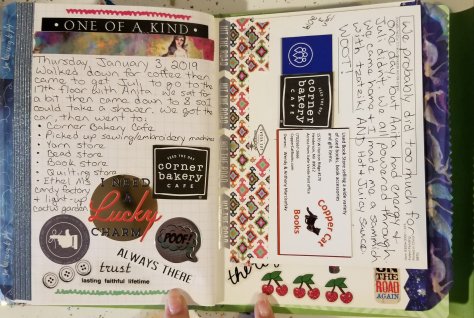 ONE OF A KIND
Thursday, January 3, 2019
Walked down for coffee then
came to get Juli to go to the
17th floor with Anita. We sat for
a bit then came down to 8 so I
could take a shower. We got the
car, then went to:
• Corner Bakery Cafe
• Picked up sewing/embroidery machine
• Yarn store
• Bead store
• Book store
• Quilting store
• Ethel M's
candy factory
+ light-up
cactus garden
corner
bakery
CAFE
I NEED
A
Lucky
CHARM
POOF!
ALWAYS THERE
trust
lasting faithful lifetime
We probably did too much for
Anita, but she had energy +
Juli didn't. We all powered through.
We came home + I made me a sammich
with tzatziki AND Hot + Juicy sauce.
WOOT!
corner
bakery
CAFE
Used Book Store offering a wide variety
of used books, book accessories
and gift items.
Copper Cat
Books
there
ON
THE
ROAD
AGAIN